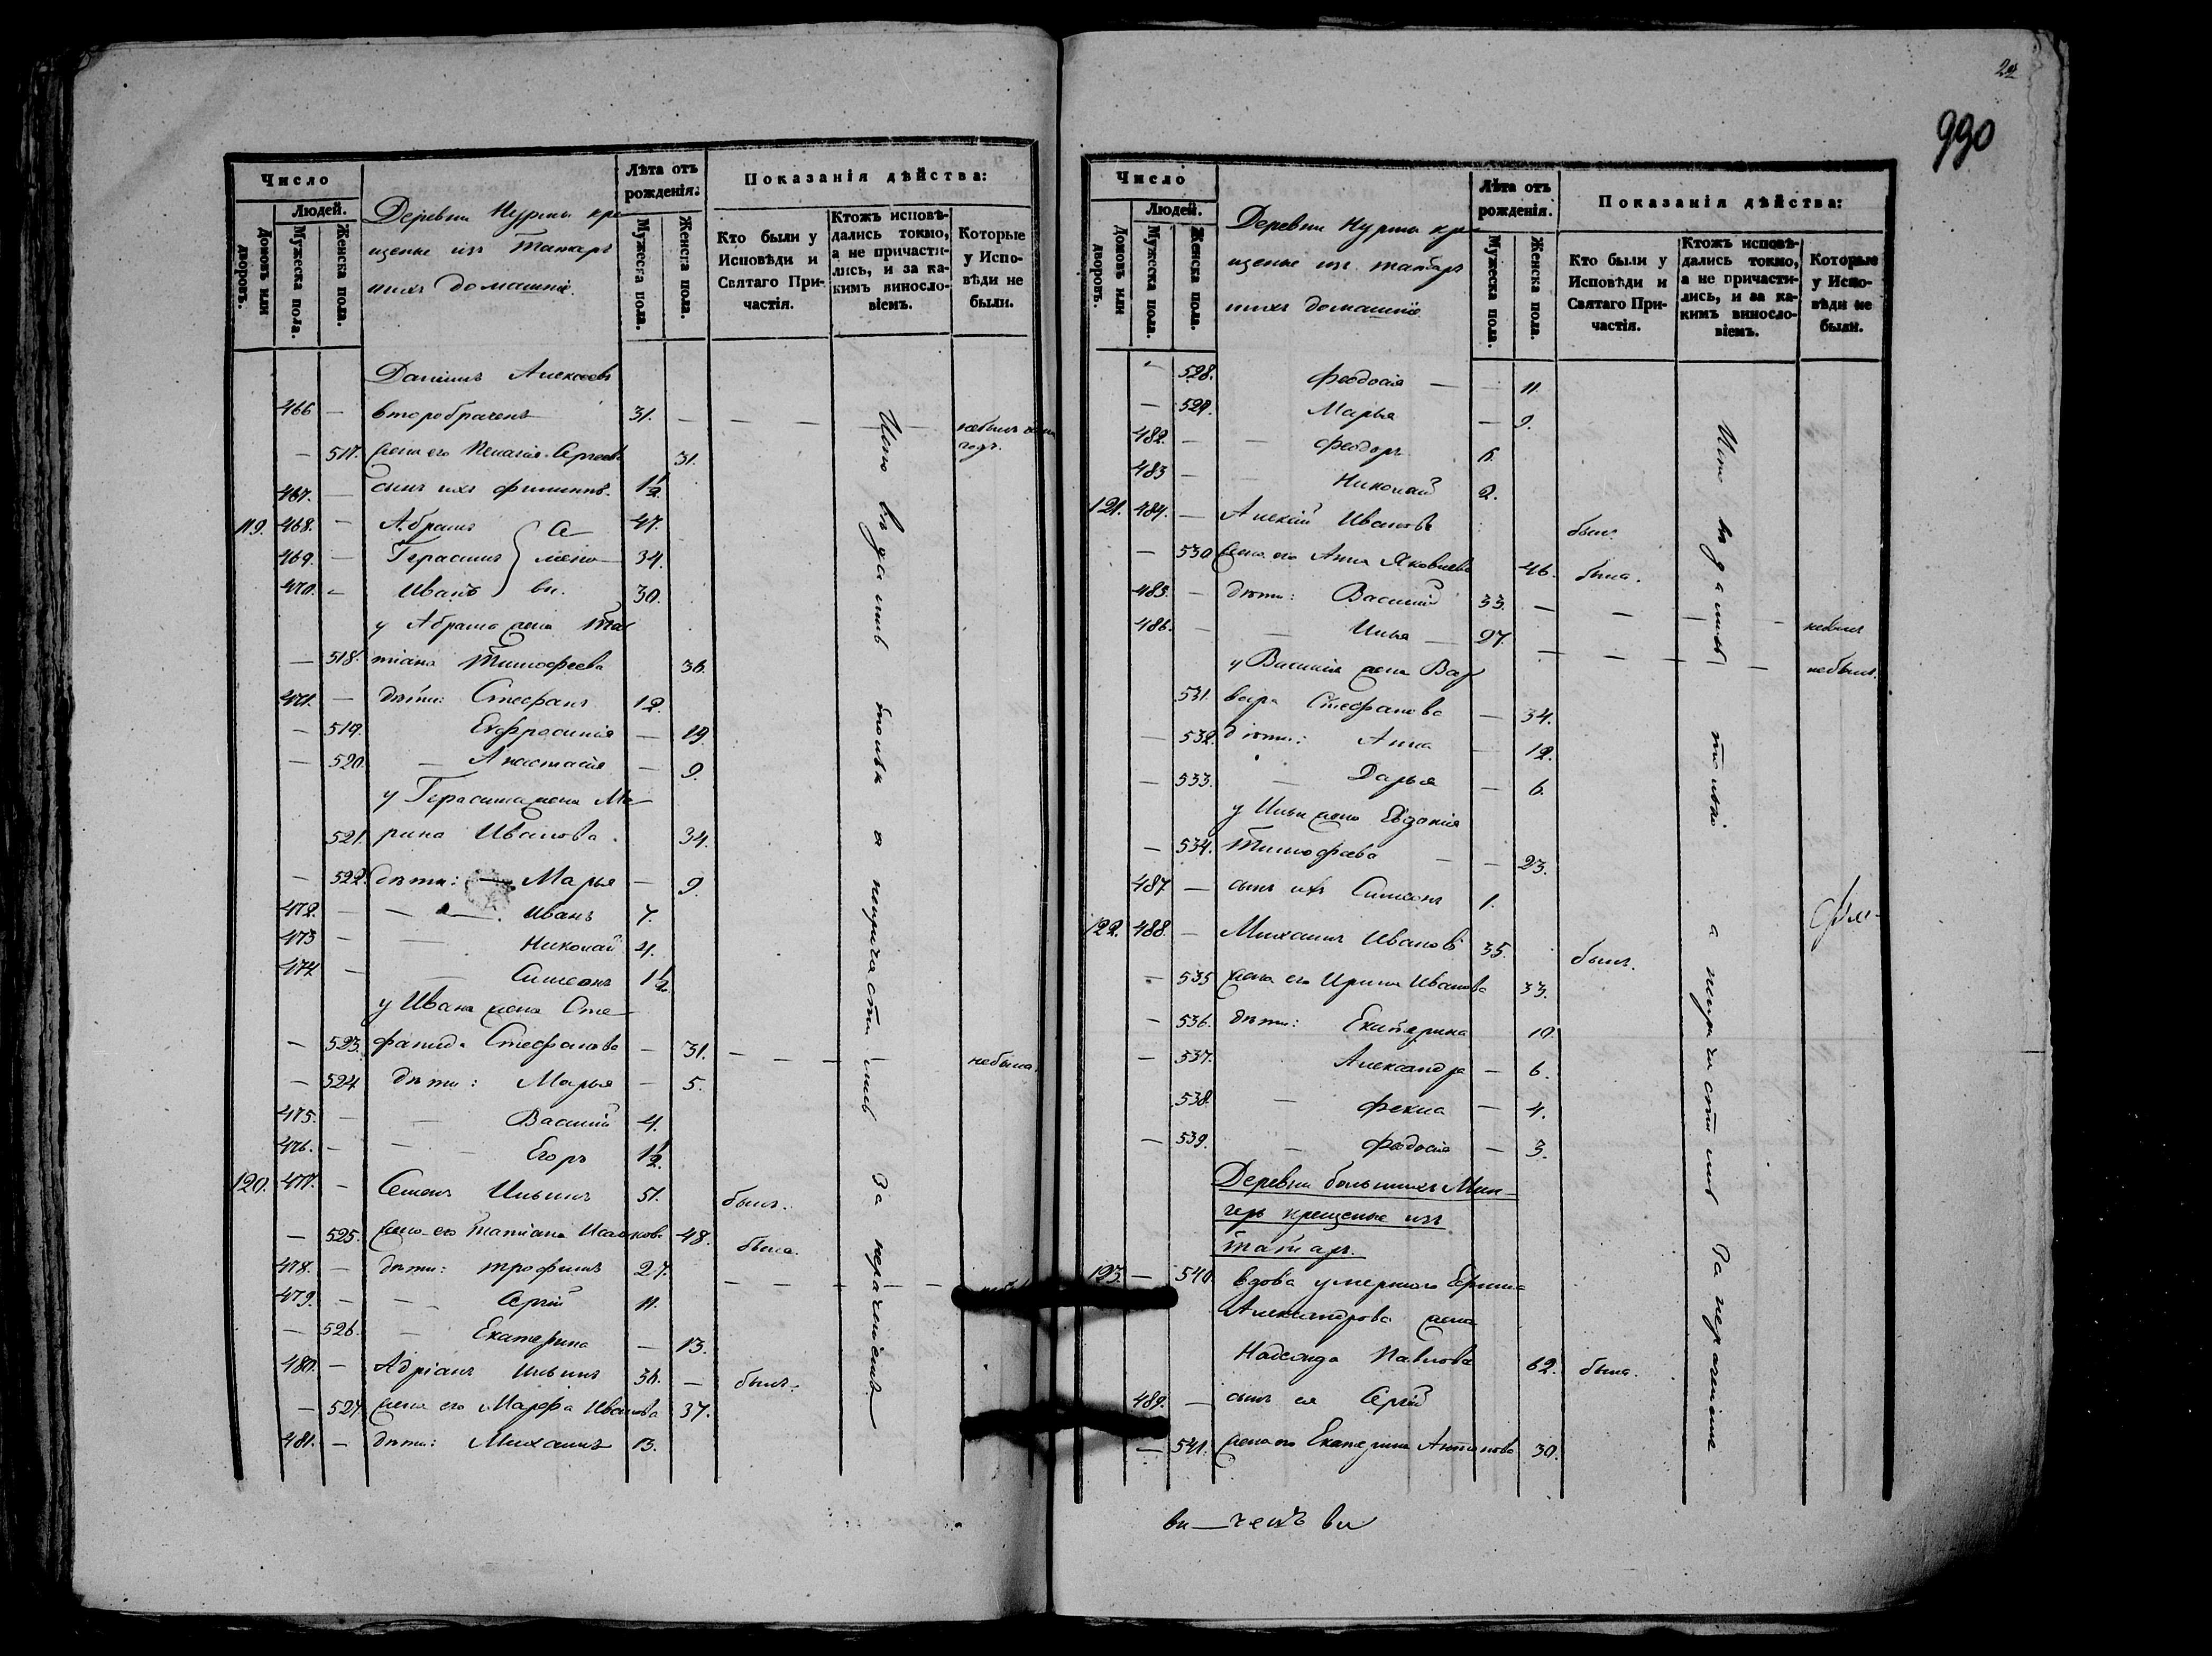 22
990
Число
Людей.
Домовъ или дворовъ.
Мужеска пола.
Женска пола.
Деревни Нурмы кре
щеные изъ татаръ
и ихъ домашніе.
Лѣта отъ рожденія:
Мужеска пола.
Женска пола.
Показанія дѣйства:
Кто были у Исповѣди и Святаго При-
частія.
Ктожъ исповѣ-
дались токмо, а не причасти-
лись, и за ка-
кимъ винос­ло-
віемъ.
Которые у Испо-
вѣди не были.
Даніилъ Алексѣевъ
466 — второбраченъ 31. — — — — небылъ
годъ.
— 517. жена его Пелагія Сергеев 31.
467. — сынъ ихъ Филиппъ. 1½
119. 468. — Абрамъ 47.
469. — Герасимъ 34.
470. — Иванъ 30.
Се
мено
вы.
у Абрама жена Тат
— 518. тіана Тимофеева 36.
471. — дѣти: Стефанъ 12.
— 519. Евфросинія — 19.
— 520. — Анастасія — 9.
у Герасима жена Ма-
521. рина Иванова. 34.
— 522. дѣти: Марья — 9.
472. — — Иванъ 7.
473 — — Николай 4.
474 — — Симеонъ 1½
у Ивана жена Сте-
— 523. фанида Стефанова — 31. — — — небыла.
— 524 дѣти: Марья — 5.
475. — — Василій 4.
476. — — Егоръ 1½.
120. 477. — Семенъ Ильинъ 51. былъ.
— 525. жена его Татіана Исаков. 48. была.
478. — дѣти: Трофимъ 27. — — — —
479. — — Сергій 11.
— 526. — Екатерина — 13.
480. — Адріанъ Ильинъ 36. — былъ.
— 527. жена его Марфа Иванова 37.
481. — дѣти: Михаилъ 13.
Исповѣдались только а непричастились за нераченіемъ.
Число
Людей.
Домовъ или дворовъ.
Мужеска пола.
Женска пола.
Деревни Нурмы кре
щеные изъ татаръ
и ихъ домашніе
Лѣта отъ рожденія.
Мужеска пола.
Женска пола.
Показанія дѣйства:
Кто были у Исповѣди и Святаго При-
частія.
Ктожъ исповѣ-
дались токмо, а не причасти-
лись, и за ка-
кимъ виносло-
віемъ.
Которые у Испо-
вѣди не были.
— 528. Феодосія — — 11.
— 529. Марья — 9.
482. — — Феодоръ 6.
483 — Николай 2.
121. 484. — Алексій Ивановъ былъ.
— 530 жена его Анна Яковлева 46. была.
485. — дѣти: Василій 33. — — — — небылъ
486. — — Илья — 27. — — — — небылъ.
у Василія жена Вар
531. вара Стефанова — 34.
— 532. дѣти: Анна — 12.
— 533. — Дарья — 6.
у Ильи жена Евдокія
— 534. Тимофеева — — 23.
487 — сынъ ихъ Симеонъ 1.
122. 488. — Михаилъ Ивановъ 35. былъ.
— 535 жена его Ирина Иванова 33.
— 536. дѣти: Екатерина 10.
— 537. Александра — 6.
538. — Фекла — 4.
— 539. — Феодосія — 3.
Деревни большихъ Мен-
геръ крещеные изъ
татаръ.
123. — 540. вдова умершаго
Александрова жена
Надежда Павлова 62. была.
489. — сынъ ея Сергій
— 541. жена его Екатерина Антонова 30.
Исповѣдались только а непричастились за нераченіемъ